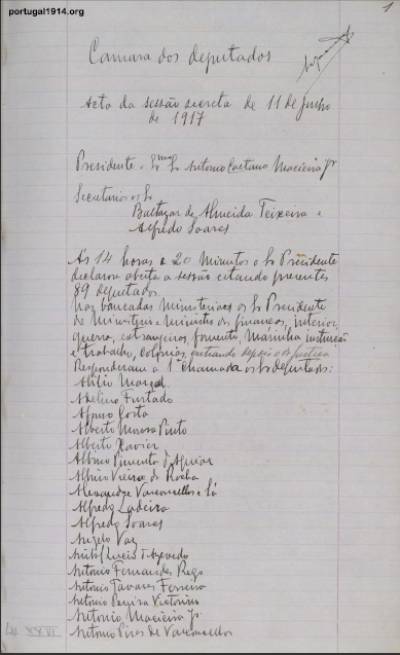 portugal1914.org
1
Camara dos deputados
Acta da sessão secreta de 11 de Junho
de 1917
Presidente o Exmo Sr Antonio Caetano Macieira Jr
Secretarios os Srs
Baltazar de Almeida Teixeira e
Alfredo Soares
As 14 horas e 20 minutos o Sr Presidente
declarou aberta a sessão estando presentes
89 deputados.
Nas bancadas ministeriaes os Srs Presidente
do Ministerio e ministros das finanças, interior,
guerra, estrangeiros, fomento, Marinha instrução
e trabalho, colonias, entrando depois o da justiça
Responderam a 1ª chamada os srs deputados:
Abilio Marçal
Adelino Furtado
Afonso Costa
Alberto Moura Pinto
Alberto Xavier
Albino Pimenta d'Aguiar
Albino Vieira da Rocha
Alexandre Vasconcellos e Sá
Alfredo Ladeira
Alfredo Soares
Angelo Vaz
Anibal Lucio d'Azevedo
Antonio Fernandes Rego
Antonio Tavares Ferreira
Antonio Pereira Victorino
Antonio Macieira Jr
Antonio Pires de Vasconcellos